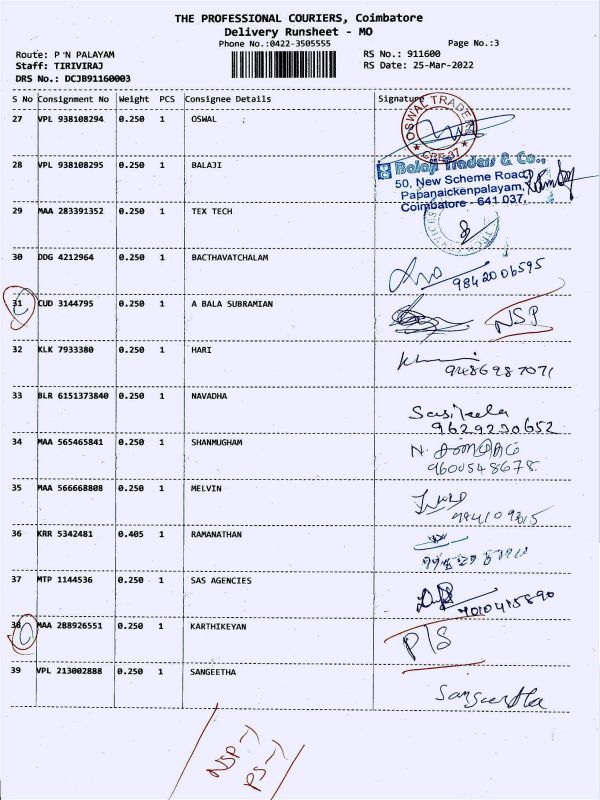 THE PROFESSIONAL COURIERS, Coimbatore
Delivery Runsheet - MO
Phone No.:0422-3505555
Page No.:3
Route: P N PALAYAM
RS No.: 911600
Staff: TIRIVIRAJ
RS Date: 25-Mar-2022
DRS No.: DCJB91160003
S No Consignment No Weight PCS Consignee Details Signature
27 VPL 938108294 0.250 1 OSWAL
OSWAL TRADERS
28 VPL 938108295 0.250 1 BALAJI
Balaji Traders & Co.,
50, New Scheme Road,
Papanaickenpalayam,
Coimbatore - 641 037.
29 MAA 283391352 0.250 1 TEX TECH
30 DDG 4212964 0.250 1 BACTHAVATCHALAM
9842006595
31 CUD 3144795 0.250 1 A BALA SUBRAMIAN
NSP
32 KLK 7933380 0.250 1 HARI
9486987071
33 BLR 6151373840 0.250 1 NAVADHA
Sasileela
9629230652
34 MAA 565465841 0.250 1 SHANMUGHAM
N.
9600548678
35 MAA 566668808 0.250 1 MELVIN
36 KRR 5342481 0.405 1 RAMANATHAN
37 MTP 1144536 0.250 1 SAS AGENCIES
38 MAA 288926551 0.250 1 KARTHIKEYAN
P/S
39 VPL 213002888 0.250 1 SANGEETHA
Sangeetha
NSP-1
PS-1